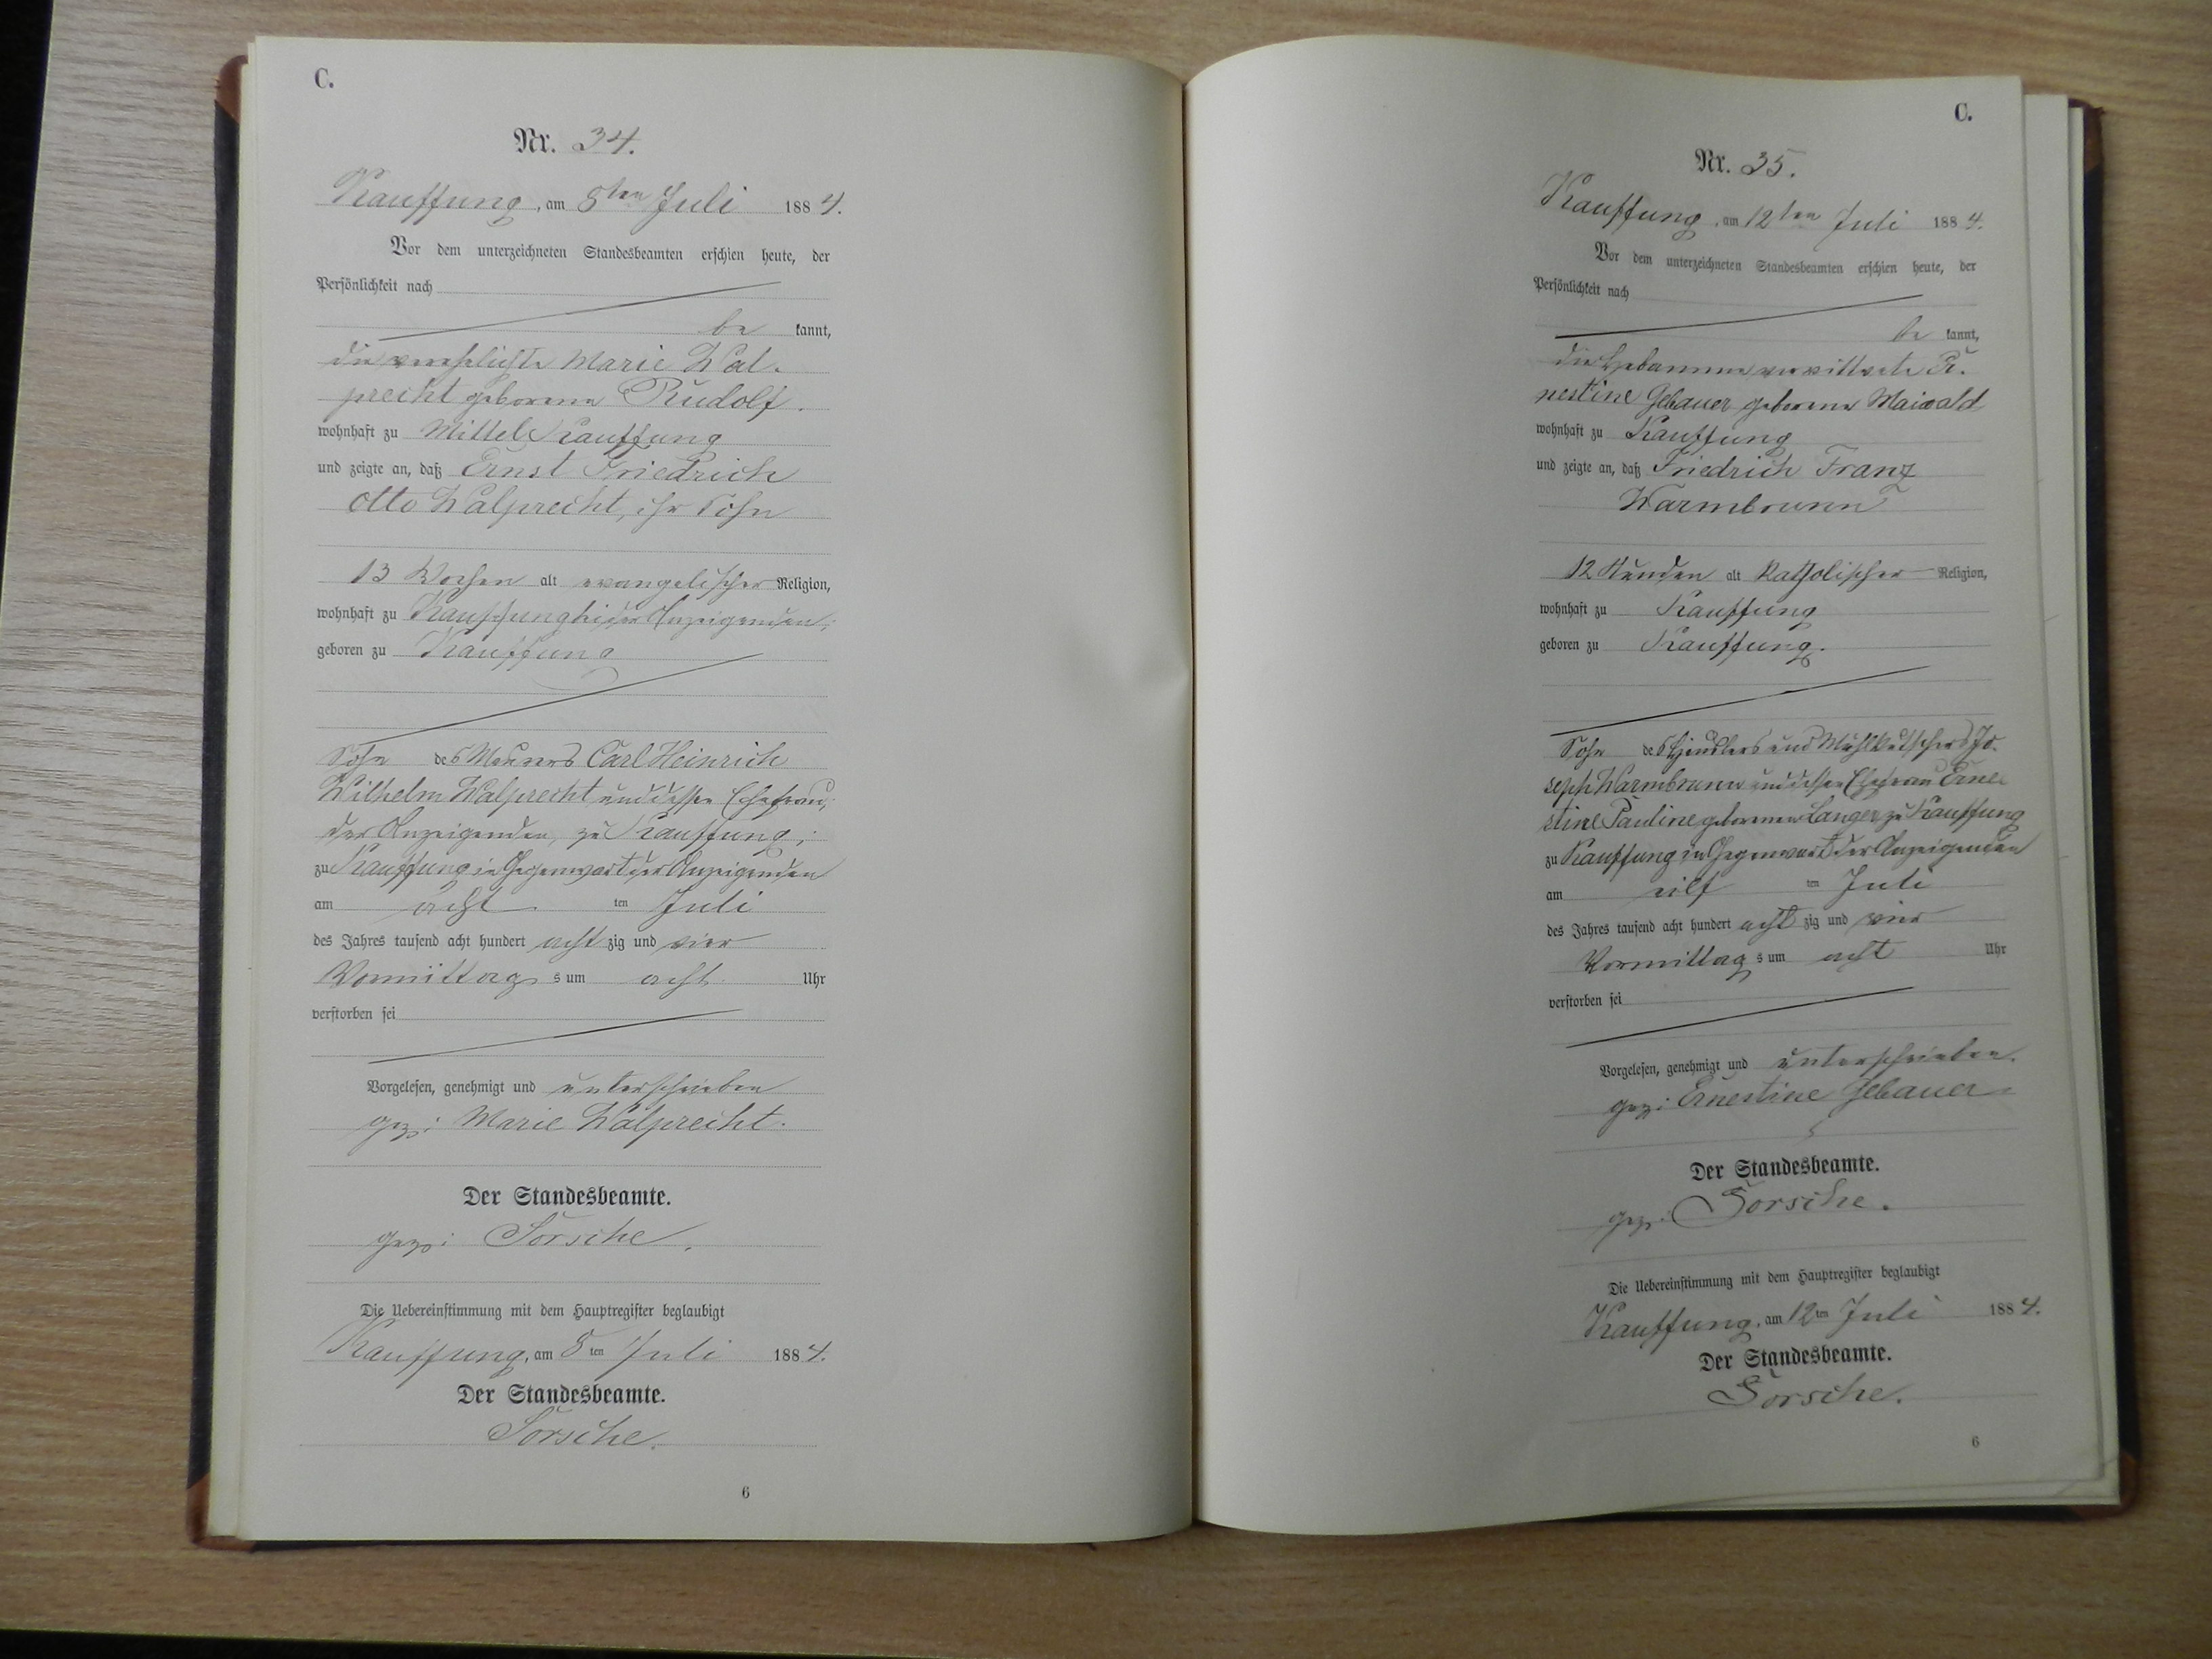 C.
Nr. 34.
Kauffung, am 8ten Juli 1884.
Vor dem unterzeichneten Standesbeamten erschien heute, der
Persönlichkeit nach
be kannt,
die verehelichte Marie Wal-
precht geborene Rudolf.
wohnhaft zu Mittel Kauffung
und zeigte an, daß Ernst Friedrich
Otto Walprecht, ihr Sohn
13 Wochen alt evangelischer Religion,
wohnhaft zu Kauffung bei der Anzeigenden,
geboren zu Kauffung
Sohn des Maurers Carl Heinrich
Wilhelm Walprecht und dessen Ehefrau,
der Anzeigenden, zu Kauffung;
zu Kauffung in Gegenwart der Anzeigenden
am acht ten Juli
des Jahres tausend acht hundert acht zig und vier
Vormittag s um acht Uhr
verstorben sei
Vorgelesen, genehmigt und unterschrieben
gez: Marie Walprecht.
Der Standesbeamte.
gez: Sorsche.
Die Uebereinstimmung mit dem Hauptregister beglaubigt
Kauffung, am 8ten Juli 1884.
Der Standesbeamte.
Sorsche.
6
C.
Nr. 35.
Kauffung, am 12ten Juli 1884.
Vor dem unterzeichneten Standesbeamten erschien heute, der
Persönlichkeit nach
be kannt,
die Hebamme verwittwete Er-
nestine Gebauer geborene Maiwald
wohnhaft zu Kauffung
und zeigte an, daß Friedrich Franz
Warmbrunn
12 Stunden alt katholischer Religion,
wohnhaft zu Kauffung
geboren zu Kauffung.
Sohn des Häuslers und Mühlkutschers Jo-
seph Warmbrunn und dessen Ehefrau Erne-
stine Pauline geborenen Langer zu Kauffung
zu Kauffung in Gegenwart der Anzeigenden
am eilf ten Juli
des Jahres tausend acht hundert acht zig und vier
Vormittag s um acht Uhr
verstorben sei
Vorgelesen, genehmigt und unterschrieben.
gez: Ernestine Gebauer
Der Standesbeamte.
gez: Sorsche.
Die Uebereinstimmung mit dem Hauptregister beglaubigt
Kauffung, am 12ten Juli 1884.
Der Standesbeamte.
Sorsche.
6